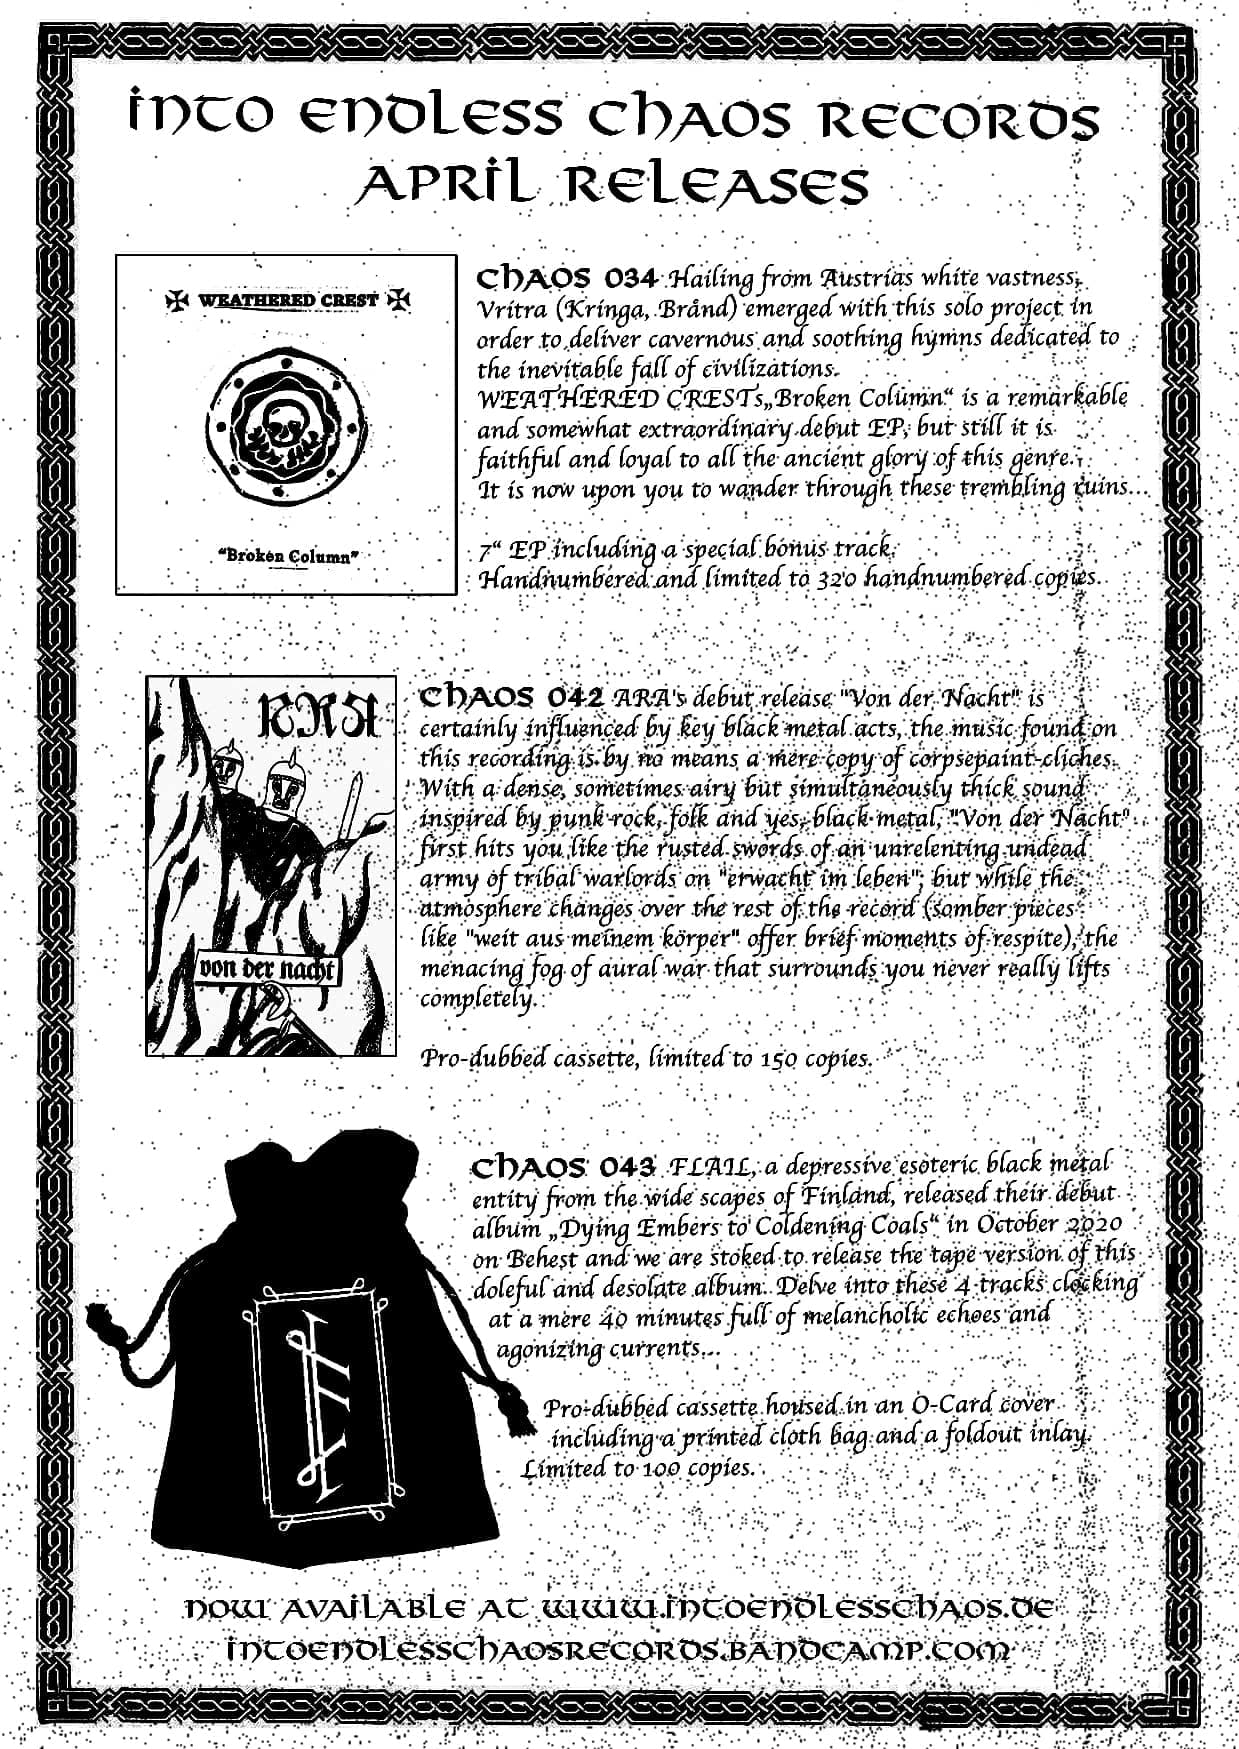 into endless chaos records
april releases
WEATHERED CREST
"Broken Column"
chaos 034 Hailing from Austrias white vastness,
Vritra (Kringa, Brånd) emerged with this solo project in
order to deliver cavernous and soothing hymns dedicated to
the inevitable fall of civilizations.
WEATHERED CRESTs „Broken Column“ is a remarkable
and somewhat extraordinary debut EP, but still it is
faithful and loyal to all the ancient glory of this genre.
It is now upon you to wander through these trembling ruins...
7“ EP including a special bonus track.
Handnumbered and limited to 320 handnumbered copies.
ARA
von der nacht
chaos 042 ARA's debut release "Von der Nacht" is
certainly influenced by key black metal acts, the music found on
this recording is by no means a mere copy of corpsepaint-cliches.
With a dense, sometimes airy but simultaneously thick sound
inspired by punk rock, folk and yes, black metal, "Von der Nacht"
first hits you like the rusted swords of an unrelenting undead
army of tribal warlords on "erwacht im leben", but while the
atmosphere changes over the rest of the record (somber pieces
like "weit aus meinem körper" offer brief moments of respite), the
menacing fog of aural war that surrounds you never really lifts
completely.
Pro-dubbed cassette, limited to 150 copies.
chaos 043 FLAIL, a depressive esoteric black metal
entity from the wide scapes of Finland, released their debut
album „Dying Embers to Coldening Coals“ in October 2020
on Behest and we are stoked to release the tape version of this
doleful and desolate album. Delve into these 4 tracks clocking
at a mere 40 minutes full of melancholic echoes and
agonizing currents...
Pro-dubbed cassette housed in an O-Card cover
including a printed cloth bag and a foldout inlay.
Limited to 100 copies.
now available at www.intoendlesschaos.de
intoendlesschaosrecords.bandcamp.com